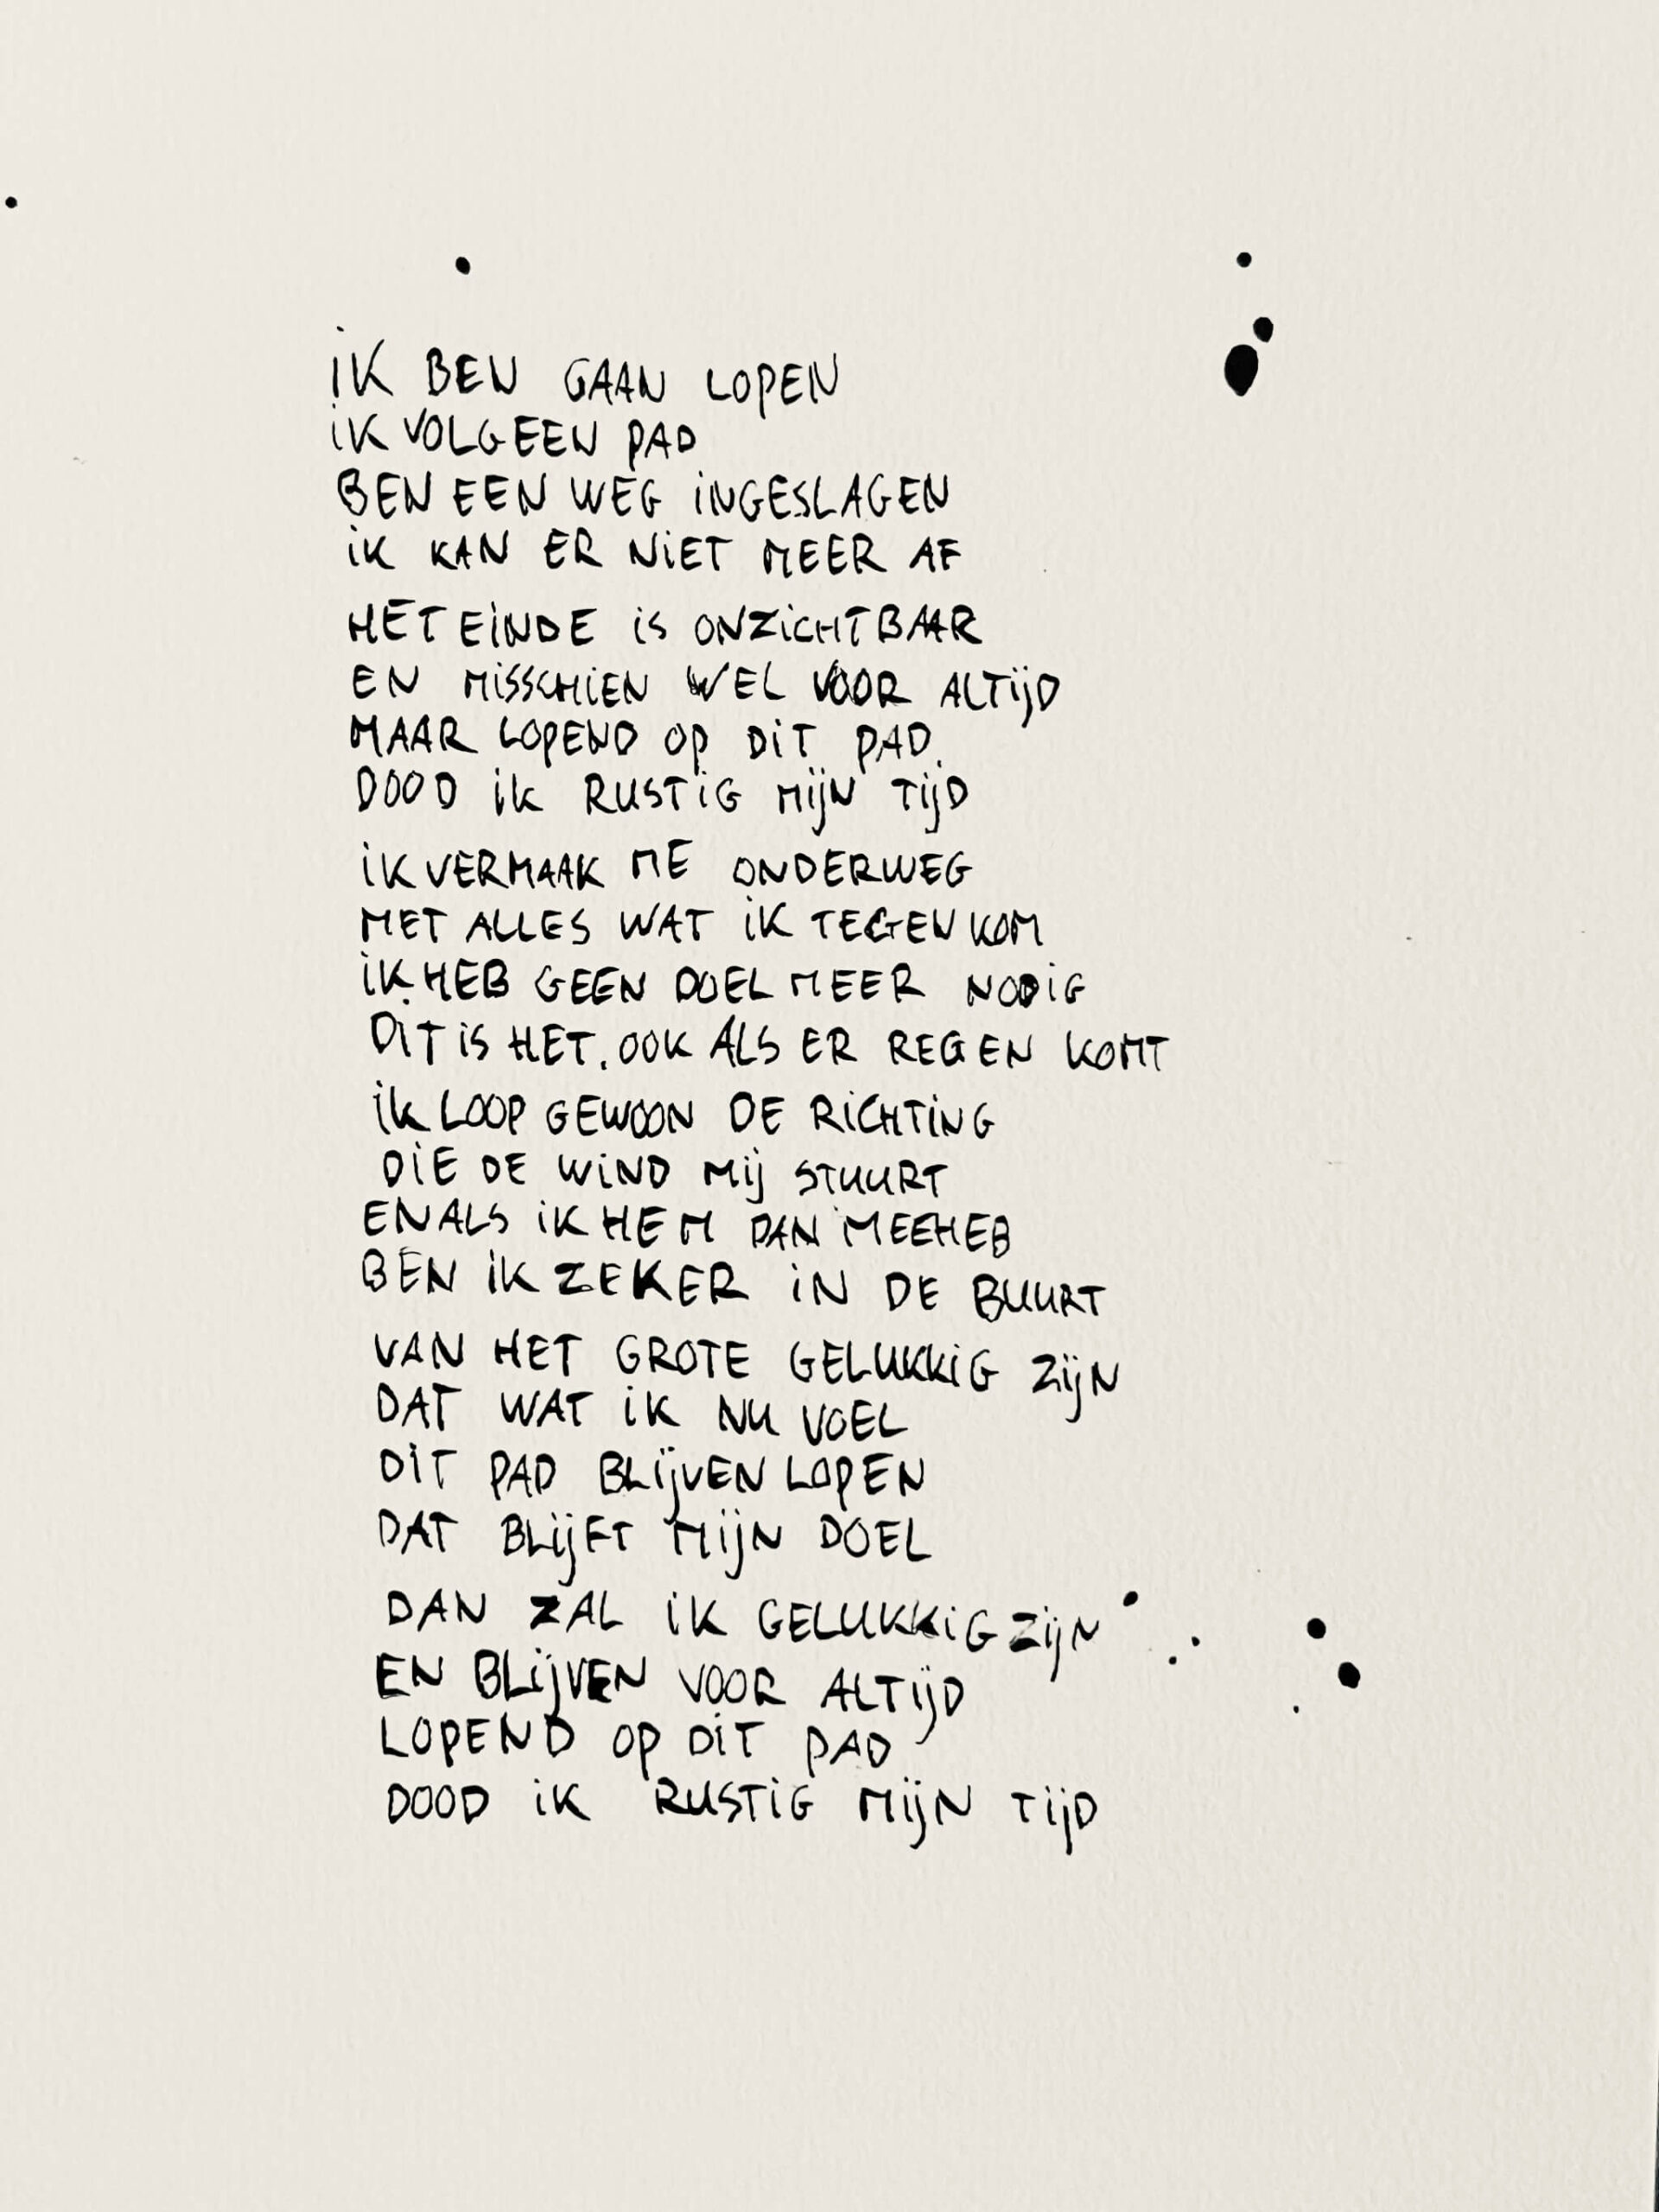 iK BEN GAAN LOPEN
iK VOLG EEN PAD
BEN EEN WEG iNGESLAGEN
iK KAN ER NiET MEER AF
HET EiNDE iS ONZiCHTBAAR
EN MiSSCHiEN WEL VOOR ALTijD
MAAR LOPEND OP DiT PAD
DOOD iK RUSTiG MijN TijD
iK VERMAAK ME ONDERWEG
MET ALLES WAT iK TEGENKOM
iK HEB GEEN DOEL MEER NODiG
DiT iS HET. OOK ALS ER REGEN KOMT
iK LOOP GEWOON DE RiCHTiNG
DiE DE WiND Mij STUURT
EN ALS iK HEM DAN MEEHEB
BEN iK ZEKER iN DE BUURT
VAN HET GROTE GELUKKiG ZijN
DAT WAT iK NU VOEL
DiT PAD BLijVEN LOPEN
DAT BLijFT MijN DOEL
DAN ZAL iK GELUKKiG ZijN
EN BLijVEN VOOR ALTijD
LOPEND OP DiT PAD
DOOD iK RUSTiG MijN TijD